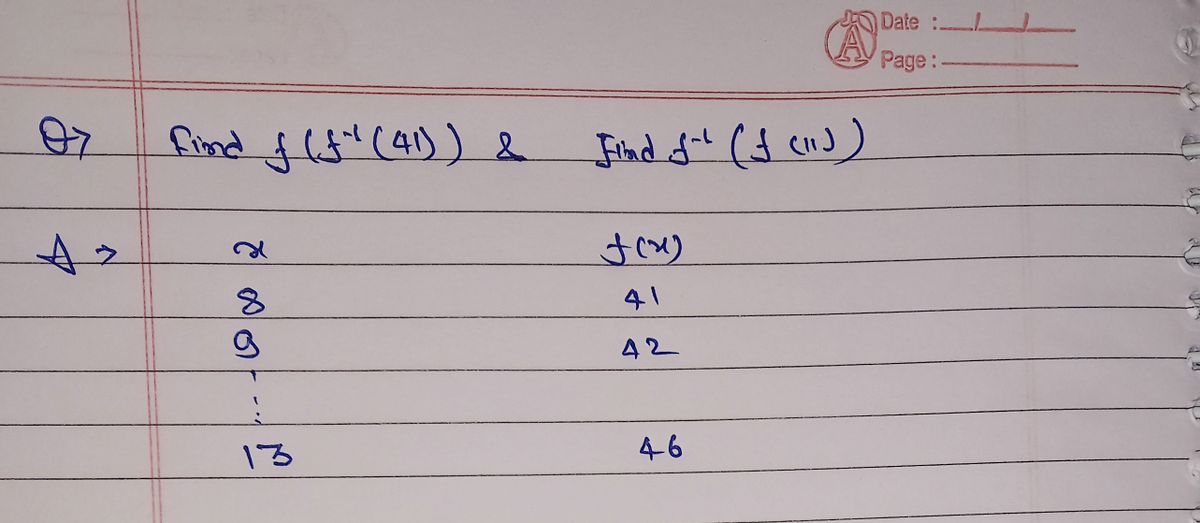 Date :
Page :
Q→ Find f(f⁻¹(41)) & Find f⁻¹(f(11))
A→ x f(x)
8 41
9 42
⋮
13 46